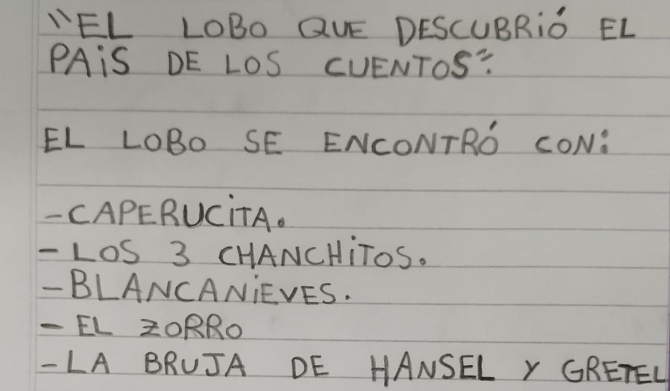 "EL LOBO QUE DESCUBRIÓ EL
PAIS DE LOS CUENTOS".
EL LOBO SE ENCONTRÓ CON:
- CAPERUCITA.
- LOS 3 CHANCHITOS.
- BLANCANIEVES.
- EL ZORRO
- LA BRUJA DE HANSEL Y GRETEL